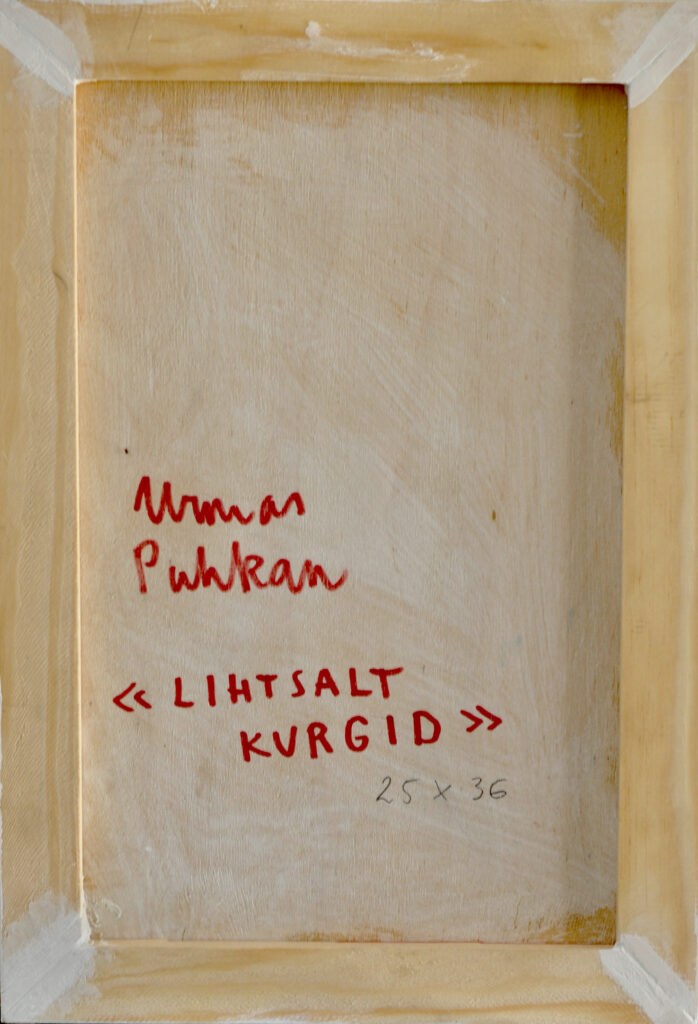 Urmas
Puhkan
« LIHTSALT
KURGID »
25 x 36